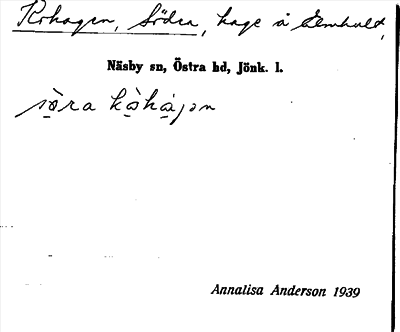 Kohagen, Södra, hage å Elmhult,
Näsby sn, Östra hd, Jönk. l.
sö̀ra kòhàgən
Annalisa Anderson 1939